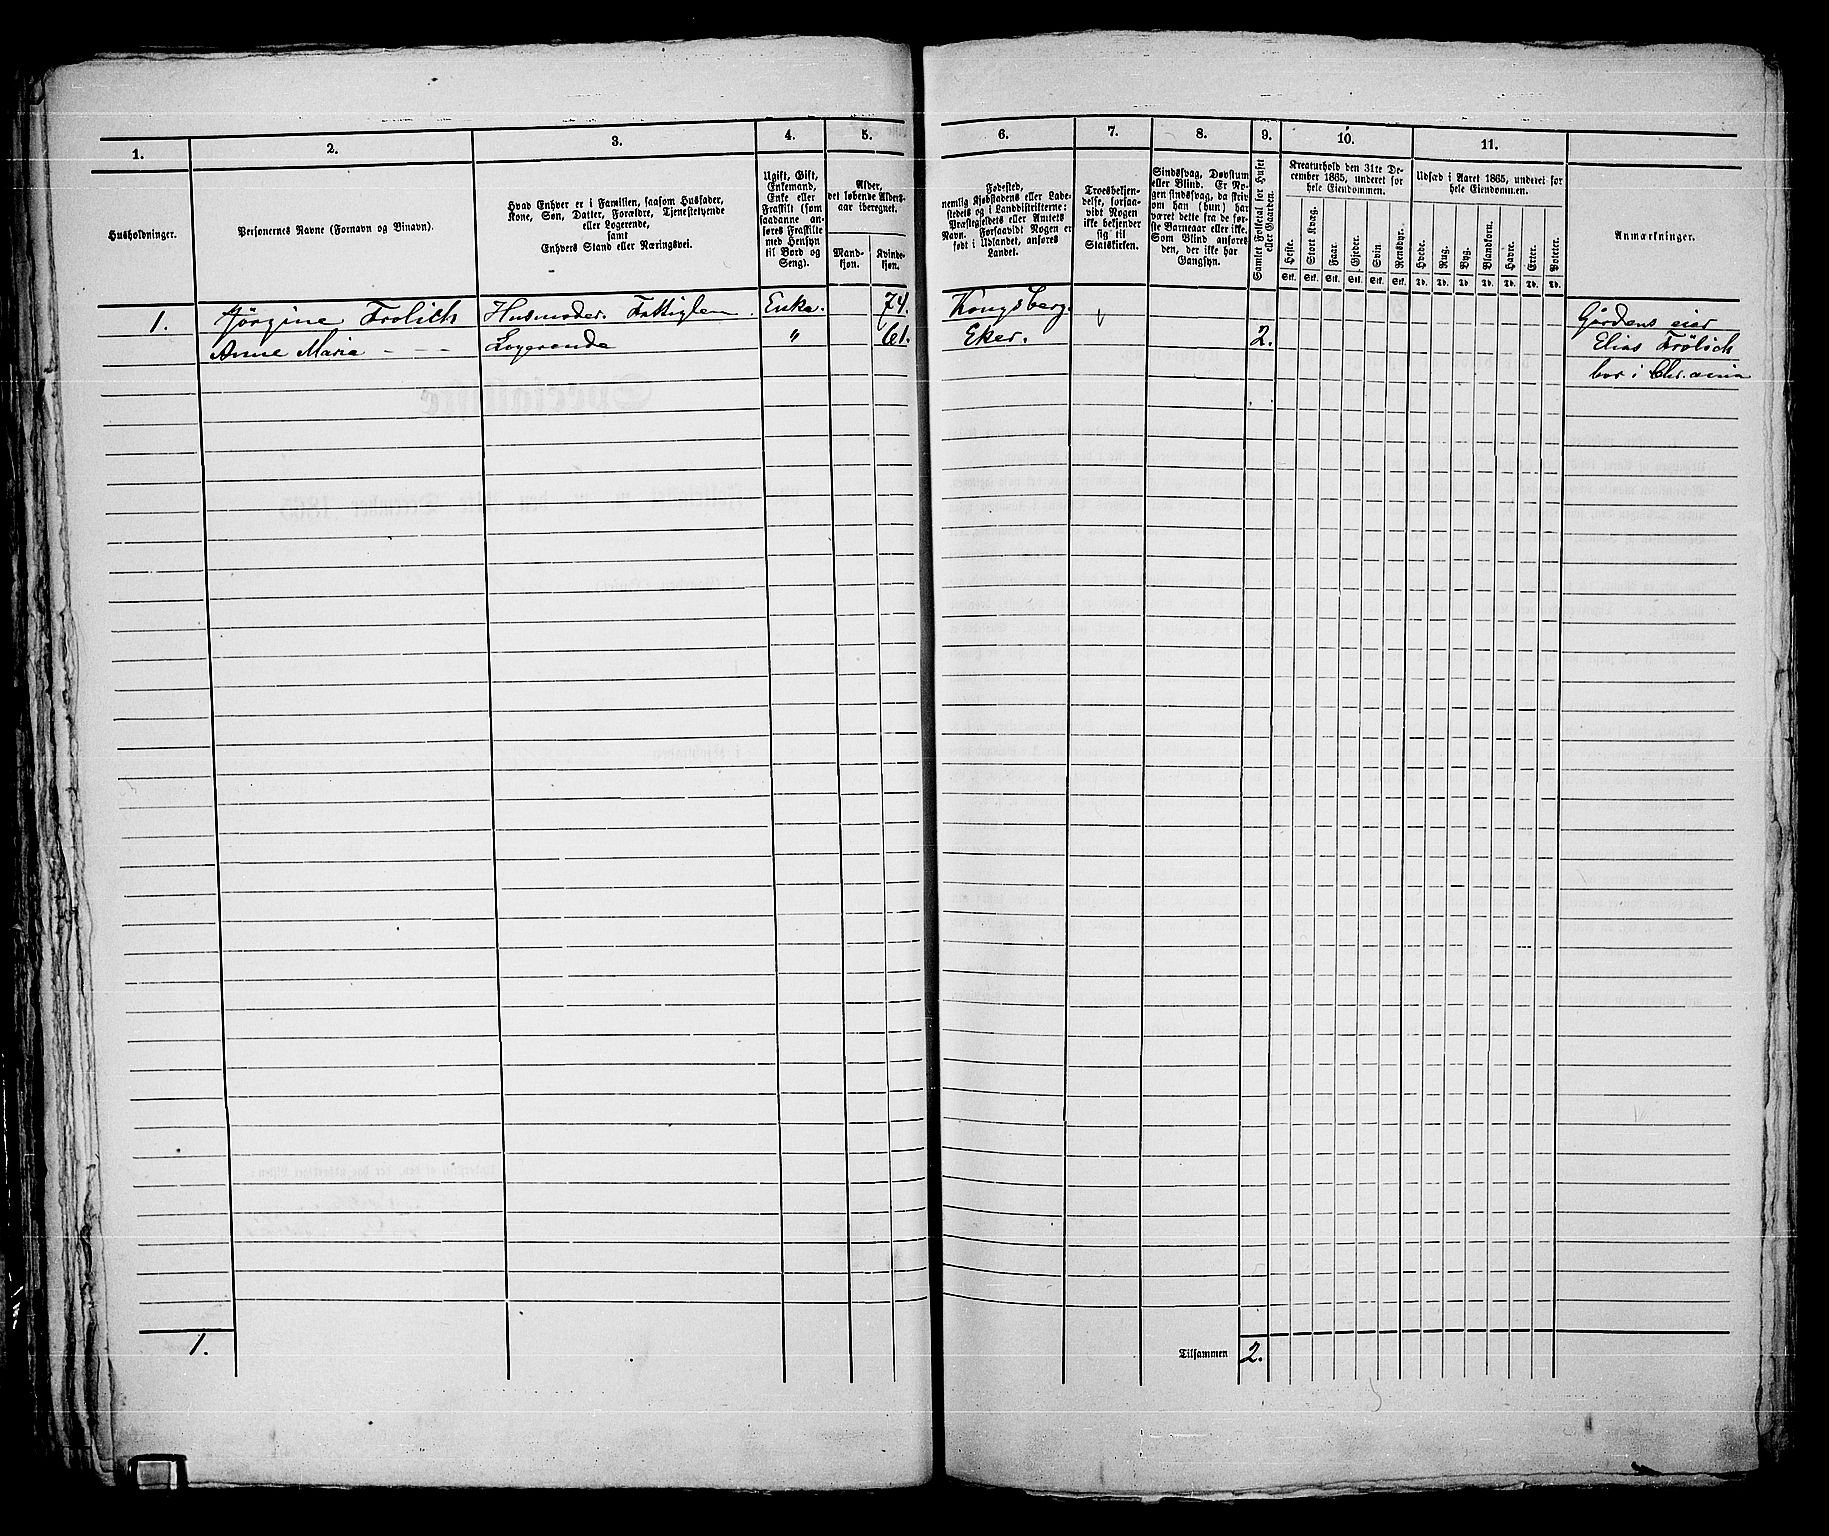 1. 2. 3. 4. 5. 6. 7. 8. 9. 10. 11.
Husholdninger.
Personernes Navne (Fornavn og Binavn).
Hvad Enhver er i Familien, saasom Husfader,
Kone, Søn, Datter, Forældre, Tjenestetyende
eller Logerende,
samt
Enhvers Stand eller Næringsvei.
Ugift, Gift,
Enkemand,
Enke eller
Fraskilt (som
saadanne an-
føres Fraskilte
med Hensyn
til Bord og
Seng).
Alder,
det løbende Alders-
aar iberegnet.
Mand-
kjøn.
Kvinde-
kjøn.
Fødested,
nemlig Kjøbstadens eller Lade-
stedets og i Landdistrikterne:
Præstegjeldets eller Amtets
Navn. Forsaavidt Nogen er
født i Udlandet, anføres
Landet.
Troesbekjen-
delse, forsaa-
vidt Nogen
ikke bekjender
sig til
Statskirken.
Sindssvag, Døvstum
eller Blind. Er No-
gen sindssvag, da skriv
om han (hun) har
været dette fra de før-
ste Barneaar eller ikke.
Som Blind anføres
den, der ikke har
Gangsyn.
Samlet Folketal for Huset
eller Gaarden.
Kreaturhold den 31te De-
cember 1865, underet for
hele Eiendommen.
Heste. Stort Kvæg. Faar. Gjeder. Svin Rensdyr.
Stk. Stk. Stk. Stk. Stk. Stk.
Udsæd i Aaret 1865, underet for
hele Eiendommen.
Hvede. Rug. Byg. Blandkorn. Havre. Erter. Poteter.
Td. Td. Td. Td. Td. Td. Td.
Anmærkninger.
1. Jørgine Frolich Husmoder. Fattiglem. Enke. 74. Kongsberg.
Anne Marie - - - Logerende " 61. Eker. 2.
Gårdens eier
Elias Frölich
bor i Chr.ania
1. Tilsammen 2.